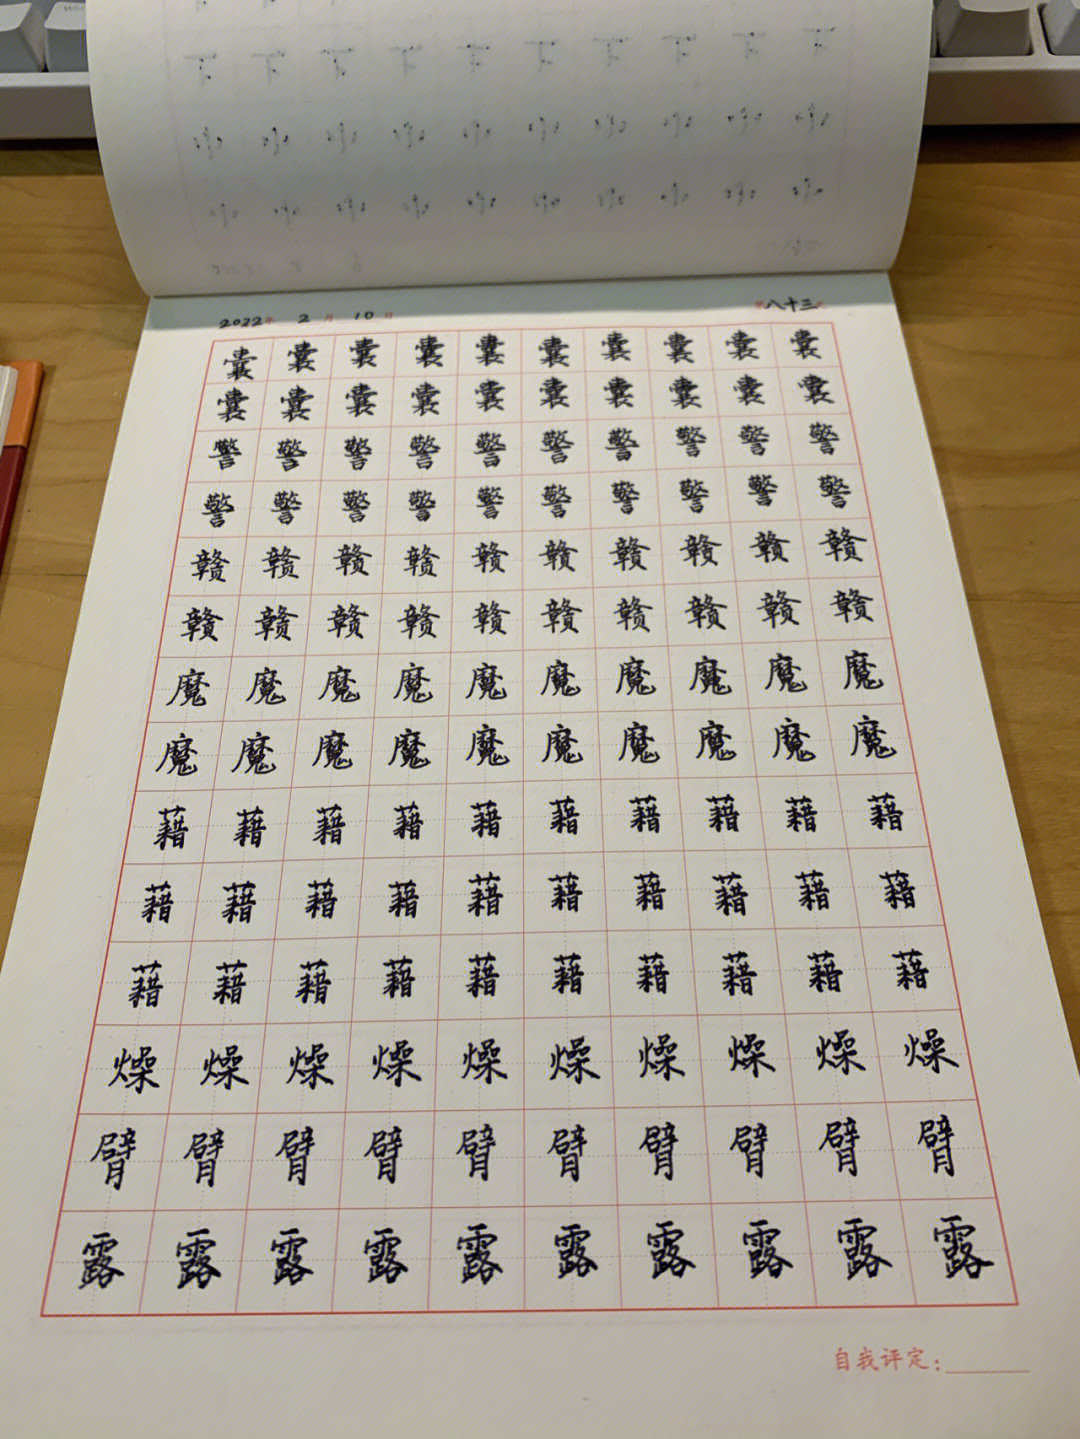 2022年 2月 10日 第八十三
囊囊囊囊囊囊囊囊囊囊
囊囊囊囊囊囊囊囊囊囊
警警警警警警警警警警
警警警警警警警警警警
赣赣赣赣赣赣赣赣赣赣
赣赣赣赣赣赣赣赣赣赣
魔魔魔魔魔魔魔魔魔魔
魔魔魔魔魔魔魔魔魔魔
藉藉藉藉藉藉藉藉藉藉
藉藉藉藉藉藉藉藉藉藉
藉藉藉藉藉藉藉藉藉藉
燥燥燥燥燥燥燥燥燥燥
臂臂臂臂臂臂臂臂臂臂
露露露露露露露露露露
自我评定: